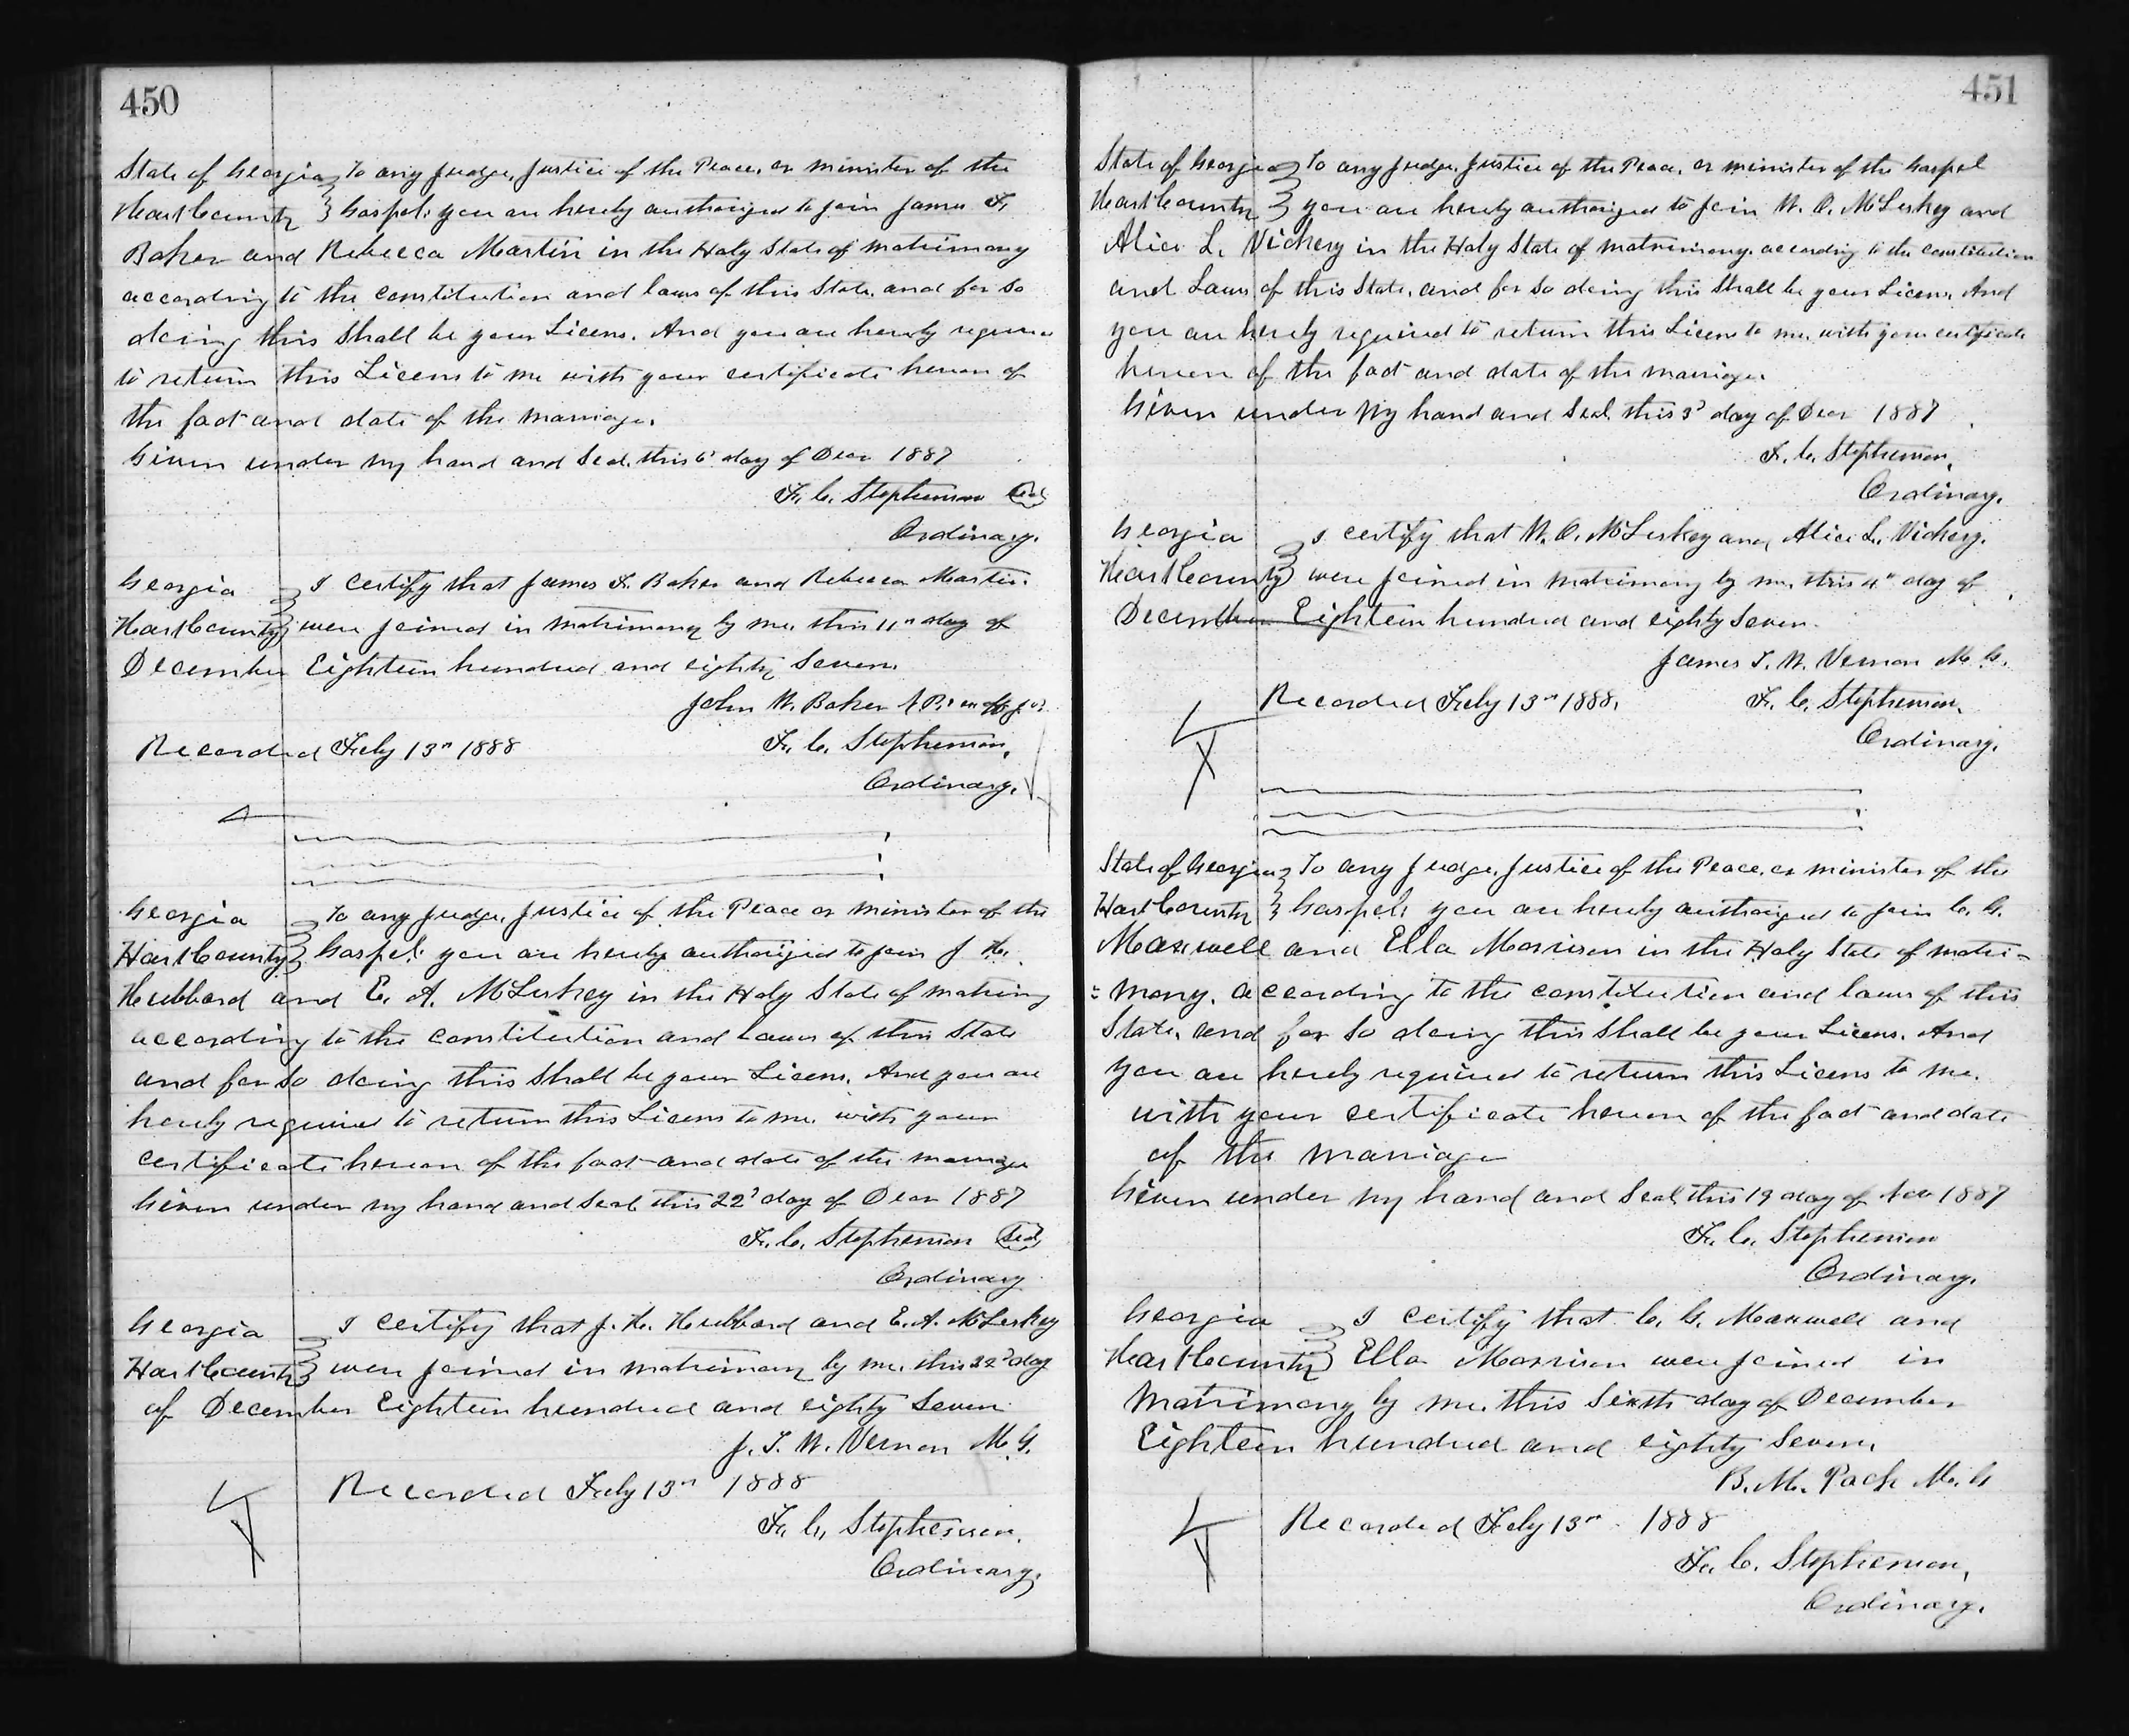 450
State of Georgia To any Judge, Justice of the Peace, or minister of the
Hart County Gospel: you are hereby authorized to join James F.
Baker and Rebecca Martin in the Holy State of matrimony
according to the constitution and laws of this State, and for so
doing this shall be your Licens. And you are hereby required
to return this Licens to me with your certificate hereon of
the fact and date of the marriage.
Given under my hand and Seal, this 6" day of Decr 1887
F. C. Stephenson Seal
Ordinary.
Georgia I certify that James F. Baker and Rebecca Martin
Hart County were joined in matrimony by me, this 11" day of
December Eighteen hundred and eighty Seven.
John W. Baker
Recorded Feby 13" 1888 F. C. Stephenson,
Ordinary.
Georgia To any Judge, Justice of the Peace or minister of the
Hart County Gospel: you are hereby authorized to join J. H.
Hubbard and E. A. McLeskey in the Holy State of matrimony
according to the constitution and Laws of this State
and for so doing this shall be your Licens. And you are
hereby required to return this Licens to me with your
certificate hereon of the fact and date of the marriage
Given under my hand and Seal this 22" day of Decr 1887
F. C. Stephenson Seal
Ordinary
Georgia I certify that J. H. Hubbard and E. A. McLeskey
Hart County were joined in matrimony by me, this 22" day
of December Eighteen hundred and eighty Seven
J. T. W. Vernon M. G.
Recorded Feby 13" 1888
F. C. Stephenson.
Ordinary,
451
State of Georgia To any Judge, Justice of the Peace, or minister of the Gospel
Hart County you are hereby authorized to join W. O. McLeskey and
Alice L. Vickery in the Holy State of matrimony, according to the constitution
and Laws of this State, and for so doing this shall be your Licens. And
you are hereby required to return this Licens to me, with your certificate
hereon of the fact and date of the marriage.
Given under my hand and Seal this 3" day of Decr 1887
F. C. Stephenson,
Ordinary.
Georgia I certify that W. O. McLeskey and Alice L. Vickery.
Hart County were joined in matrimony by me, this 4" day of
December Eighteen hundred and eighty Seven.
James T. W. Vernon M. G.
Recorded Feby 13" 1888. F. C. Stephenson,
Ordinary.
State of Georgia To any Judge, Justice of the Peace, or minister of the
Hart County Gospel: you are hereby authorized to join C. G.
Maxwell and Ella Morrison in the Holy State of matri-
=mony, according to the constitution and laws of this
State, and for so doing this shall be your Licens. And
you are hereby required to return this Licens to me.
with your certificate hereon of the fact and date
of the marriage
Given under my hand and Seal, this 19 day of Nov 1887
F. C. Stephenson
Ordinary.
Georgia I certify that C. G. Maxwell and
Hart County Ella Morrison were joined in
Matrimony by me. this Sixth day of December
Eighteen hundred and eighty Seven,
B. M. Pack M. G
Recorded Feby 13" 1888
F. C. Stephenson,
Ordinary.